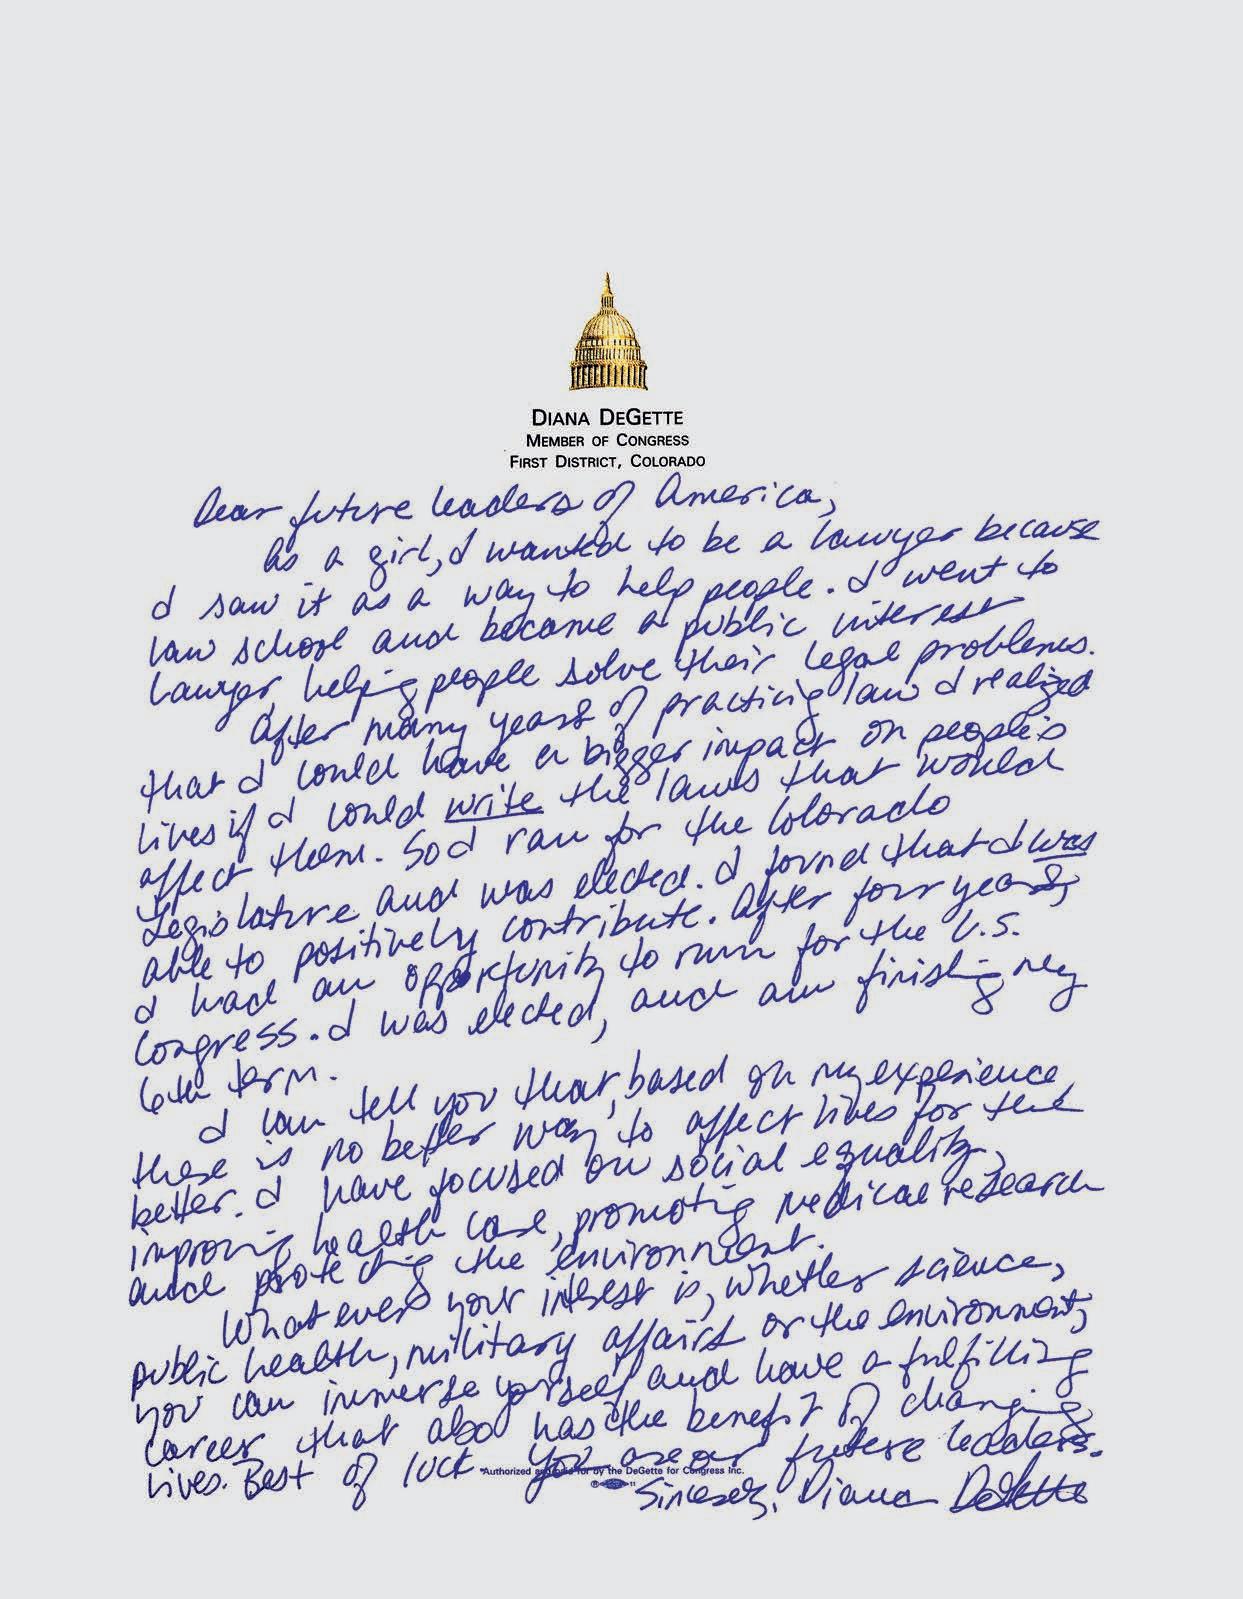 DIANA DEGETTE
MEMBER OF CONGRESS
FIRST DISTRICT, COLORADO
Dear future leaders of America,
As a girl, I wanted to be a lawyer because
I saw it as a way to help people. I went to
law school and became a public interest
lawyer, helping people solve their legal problems.
After many years of practicing law I realized
that I could have a bigger impact on people's
lives if I could write the laws that would
affect them. So I ran for the Colorado
Legislature and was elected. I found that I was
able to positively contribute. After four years,
I had an opportunity to run for the U.S.
Congress. I was elected, and am finishing my
6th term.
I can tell you that, based on my experience,
there is no better way to affect lives for the
better. I have focused on social equality,
improving health care, promoting medical research
and protecting the environment.
Whatever your interest is, whether science,
public health, military affairs or the environment,
you can immerse yourself and have a fulfilling
career that also has the benefit of changing
lives. Best of luck. You are our future leaders.
Authorized and paid for by the DeGette for Congress Inc.
Sincerely, Diana DeGette